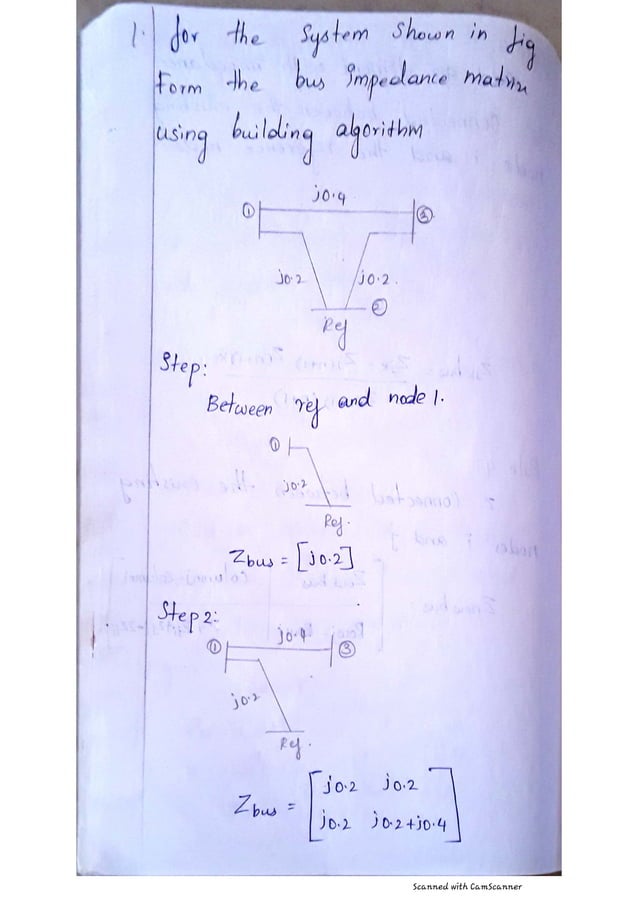 1. for the System Shown in fig
Form the bus Impedance matrix
using building algorithm
j0.4
① ③
j0.2 j0.2.
②
Ref
Step:
Between ref and node 1.
①
j0.2
Ref.
Zbus = [j0.2]
Step 2:
j0.4
① ③
j0.2
Ref.
Zbus = [j0.2 j0.2
j0.2 j0.2+j0.4]
Scanned with CamScanner